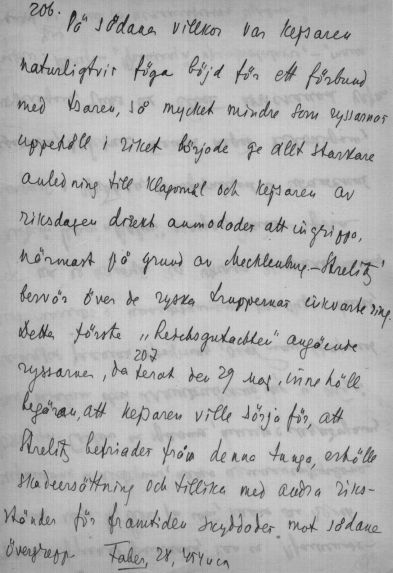 206.
På sådana villkor var kejsaren
naturligtvis föga böjd för ett förbund
med tsaren, så mycket mindre som ryssarnas
uppehåll i riket började ge allt starkare
anledning till klagomål och kejsaren av
riksdagen direkt anmodades att ingripa,
närmast på grund av Mecklenburg-Strelitz'
besvär över de ryska truppernas inkvartering.
Detta första „Reichsgutachten" angående
207
ryssarne, daterat den 29 maj, innehöll
begäran, att kejsaren ville sörja för, att
Strelitz befriades från denna tunga, erhölle
skadeersättning och tillika med andra riks-
ständer för framtiden skyddades mot sådana
övergrepp Faber, 28,